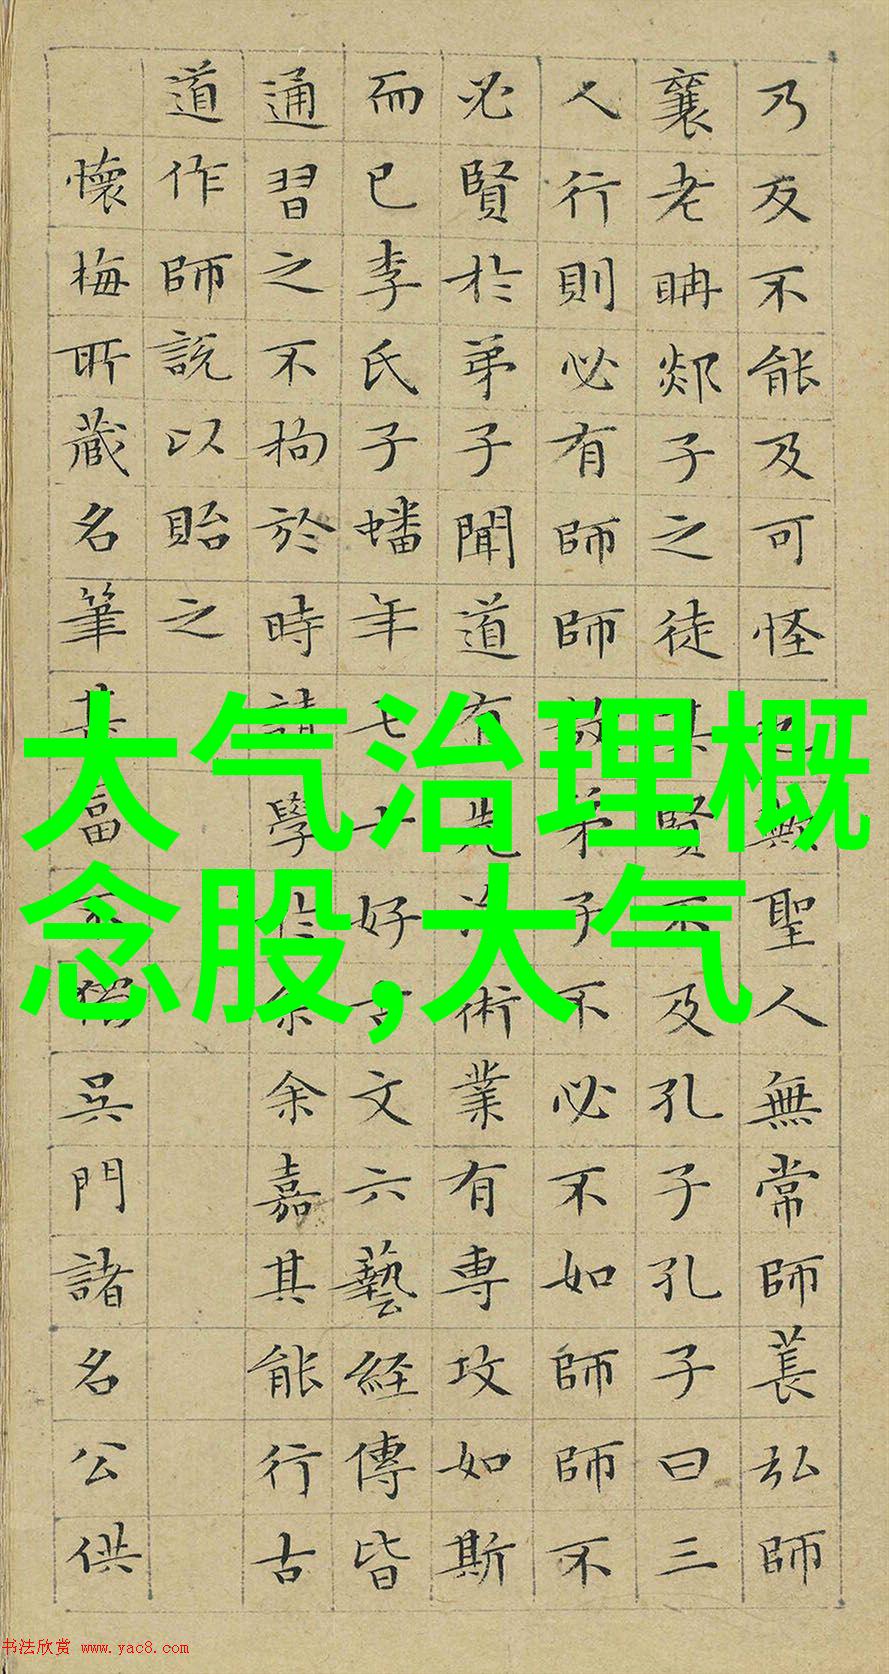 乃反不能及可怪也歟聖人無常師萇弘師
襄老聃郯子之徒其賢不及孔子孔子曰三
人行則必有師師故弟子不必不如師師不
必賢於弟子聞道有先術業有專攻如斯
而已李氏子蟠年七十好古文六藝経傳皆
通習之不拘於時請學於余余嘉其能行古
道作師說以貽之
懷梅所藏名筆甚富不獨吳門諸名公供
大气治理概
念股,大气
书法欣赏 www.yac8.com